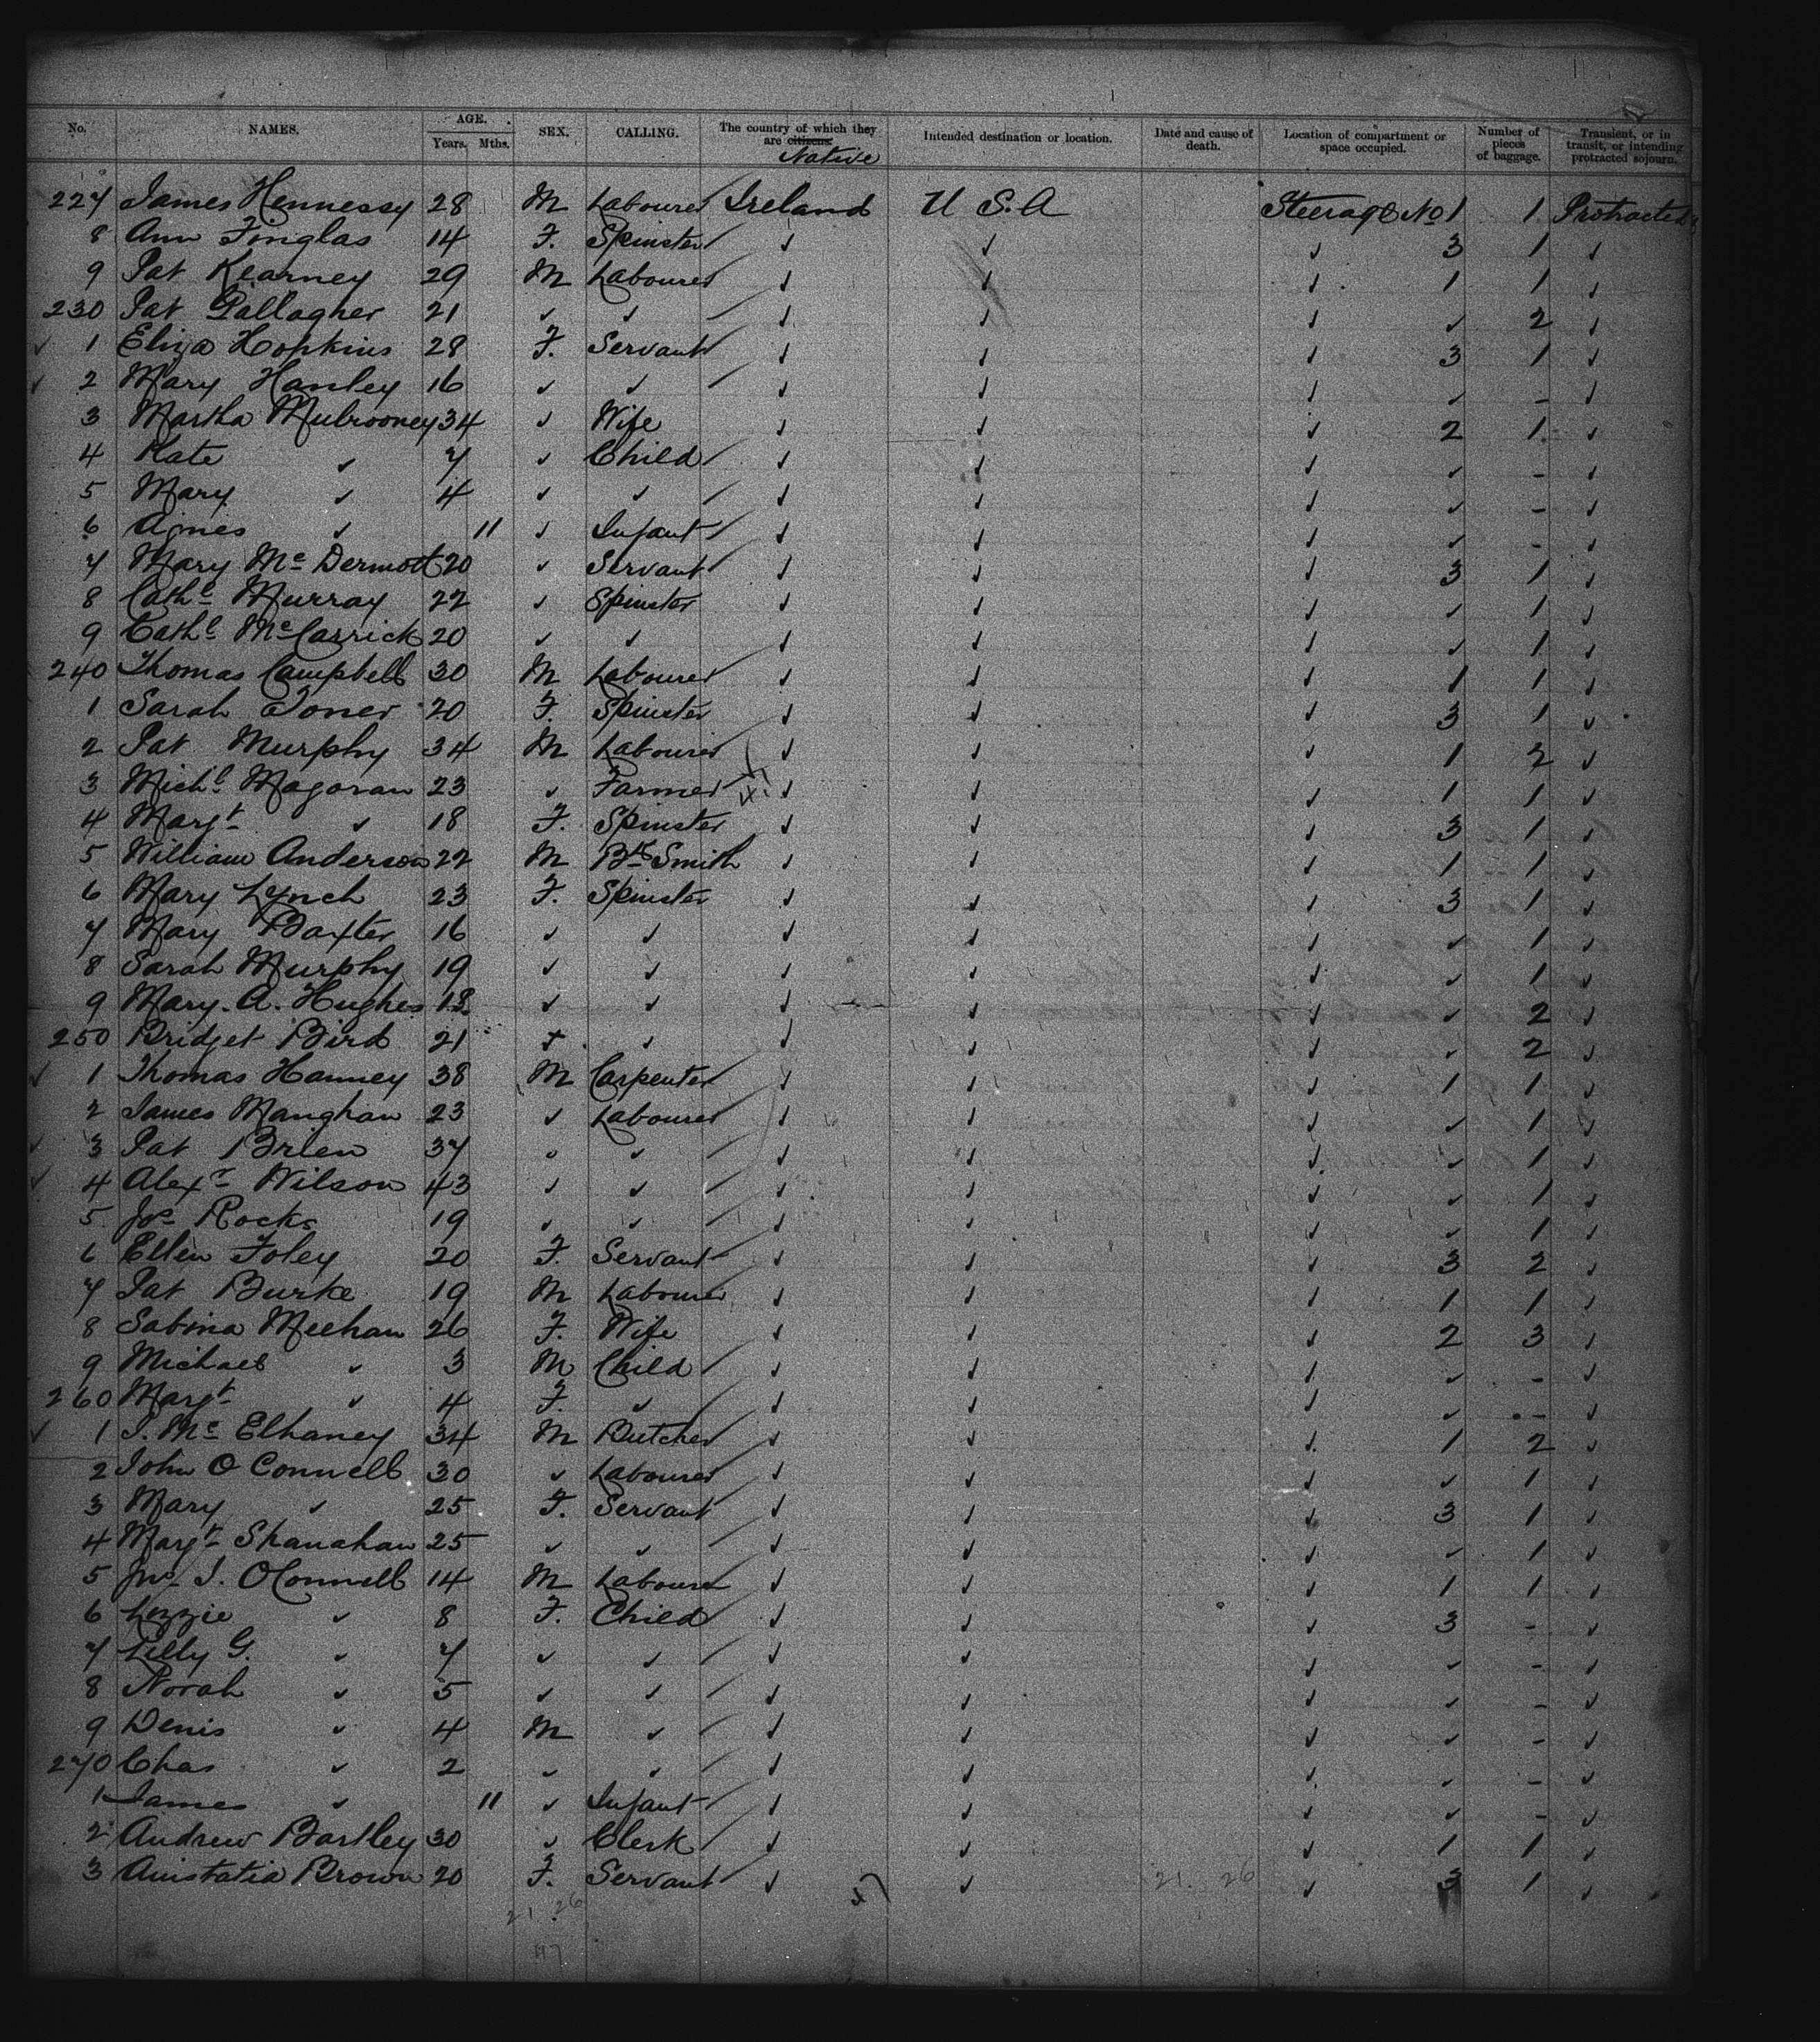 No. NAMES. AGE. Years. Mths. SEX. CALLING. The country of which they are citizens. Native Intended destination or location. Date and cause of death. Location of compartment or space occupied. Number of pieces of baggage. Transient, or in transit, or intending protracted sojourn.
227 James Hennessy 28 M Labourer Ireland U S.A Steerage No 1 1 Protracted
8 Ann Finglas 14 F. Spinster ✓ ✓ ✓ 3 1 ✓
9 Pat Kearney 29 M Labourer ✓ ✓ ✓ 1 1 ✓
230 Pat Gallagher 21 ✓ ✓ ✓ ✓ ✓ ✓ 2 ✓
✓ 1 Eliza Hopkins 28 F. Servant ✓ ✓ ✓ 3 1 ✓
✓ 2 Mary Hanley 16 ✓ ✓ ✓ ✓ ✓ ✓ - ✓
3 Martha Mulrooney 34 ✓ Wife ✓ ✓ ✓ 2 1 ✓
4 Kate ✓ 7 ✓ Child ✓ ✓ ✓ ✓ - ✓
5 Mary ✓ 4 ✓ ✓ ✓ ✓ ✓ ✓ - ✓
6 Agnes ✓ 11 ✓ Infant ✓ ✓ ✓ ✓ - ✓
7 Mary Mc Dermott 20 ✓ Servant ✓ ✓ ✓ 3 1 ✓
8 Cathe Murray 22 ✓ Spinster ✓ ✓ ✓ ✓ 1 ✓
9 Cathe McCarrick 20 ✓ ✓ ✓ ✓ ✓ ✓ 1 ✓
240 Thomas Campbell 30 M Labourer ✓ ✓ ✓ 1 1 ✓
1 Sarah Toner 20 F. Spinster ✓ ✓ ✓ 3 1 ✓
2 Pat Murphy 34 M Labourer ✓ ✓ ✓ 1 2 ✓
3 Michl Magoran 23 ✓ Farmer ✓ ✓ ✓ 1 1 ✓
4 Margt ✓ 18 F. Spinster ✓ ✓ ✓ 3 1 ✓
5 William Anderson 22 M Blk Smith ✓ ✓ ✓ 1 1 ✓
6 Mary Lynch 23 F. Spinster ✓ ✓ ✓ 3 1 ✓
7 Mary Baxter 16 ✓ ✓ ✓ ✓ ✓ ✓ 1 ✓
8 Sarah Murphy 19 ✓ ✓ ✓ ✓ ✓ ✓ 1 ✓
9 Mary. A. Hughes 18 ✓ ✓ ✓ ✓ ✓ ✓ 2 ✓
250 Bridget Bird 21 ✓ ✓ ✓ ✓ ✓ ✓ 2 ✓
✓ 1 Thomas Hanney 38 M Carpenter ✓ ✓ ✓ 1 1 ✓
2 James Manghan 23 ✓ Labourer ✓ ✓ ✓ ✓ 1 ✓
✓ 3 Pat Brien 37 ✓ ✓ ✓ ✓ ✓ ✓ 1 ✓
✓ 4 Alexr Wilson 43 ✓ ✓ ✓ ✓ ✓ ✓ 1 ✓
5 Jos Rocks 19 ✓ ✓ ✓ ✓ ✓ ✓ 1 ✓
6 Ellen Foley 20 F. Servant ✓ ✓ ✓ 3 2 ✓
7 Pat Burke 19 M Labourer ✓ ✓ ✓ 1 1 ✓
8 Sabina Meehan 26 F. Wife ✓ ✓ ✓ 2 3 ✓
9 Michael ✓ 3 M Child ✓ ✓ ✓ ✓ - ✓
260 Margt ✓ 4 F. ✓ ✓ ✓ ✓ ✓ - ✓
✓ 1 J. Mc Elhaney 34 M Butcher ✓ ✓ ✓ 1 2 ✓
2 John O Connell 30 ✓ Labourer ✓ ✓ ✓ ✓ 1 ✓
3 Mary ✓ 25 F. Servant ✓ ✓ ✓ 3 1 ✓
4 Margt Shanahan 25 ✓ ✓ ✓ ✓ ✓ ✓ 1 ✓
5 Jno J. OConnell 14 M Labourer ✓ ✓ ✓ 1 1 ✓
6 Lizzie ✓ 8 F. Child ✓ ✓ ✓ 3 - ✓
7 Lilly G. ✓ 7 ✓ ✓ ✓ ✓ ✓ ✓ - ✓
8 Norah ✓ 5 ✓ ✓ ✓ ✓ ✓ ✓ - ✓
9 Denis ✓ 4 M ✓ ✓ ✓ ✓ ✓ - ✓
270 Chas ✓ 2 ✓ ✓ ✓ ✓ ✓ ✓ - ✓
1 James ✓ 11 ✓ Infant ✓ ✓ ✓ ✓ - ✓
2 Andrew Bartley 30 ✓ Clerk ✓ ✓ ✓ 1 1 ✓
3 Anistatia Brown 20 F. Servant ✓ ✓ 21. 26 ✓ 3 1 ✓
21 26
47